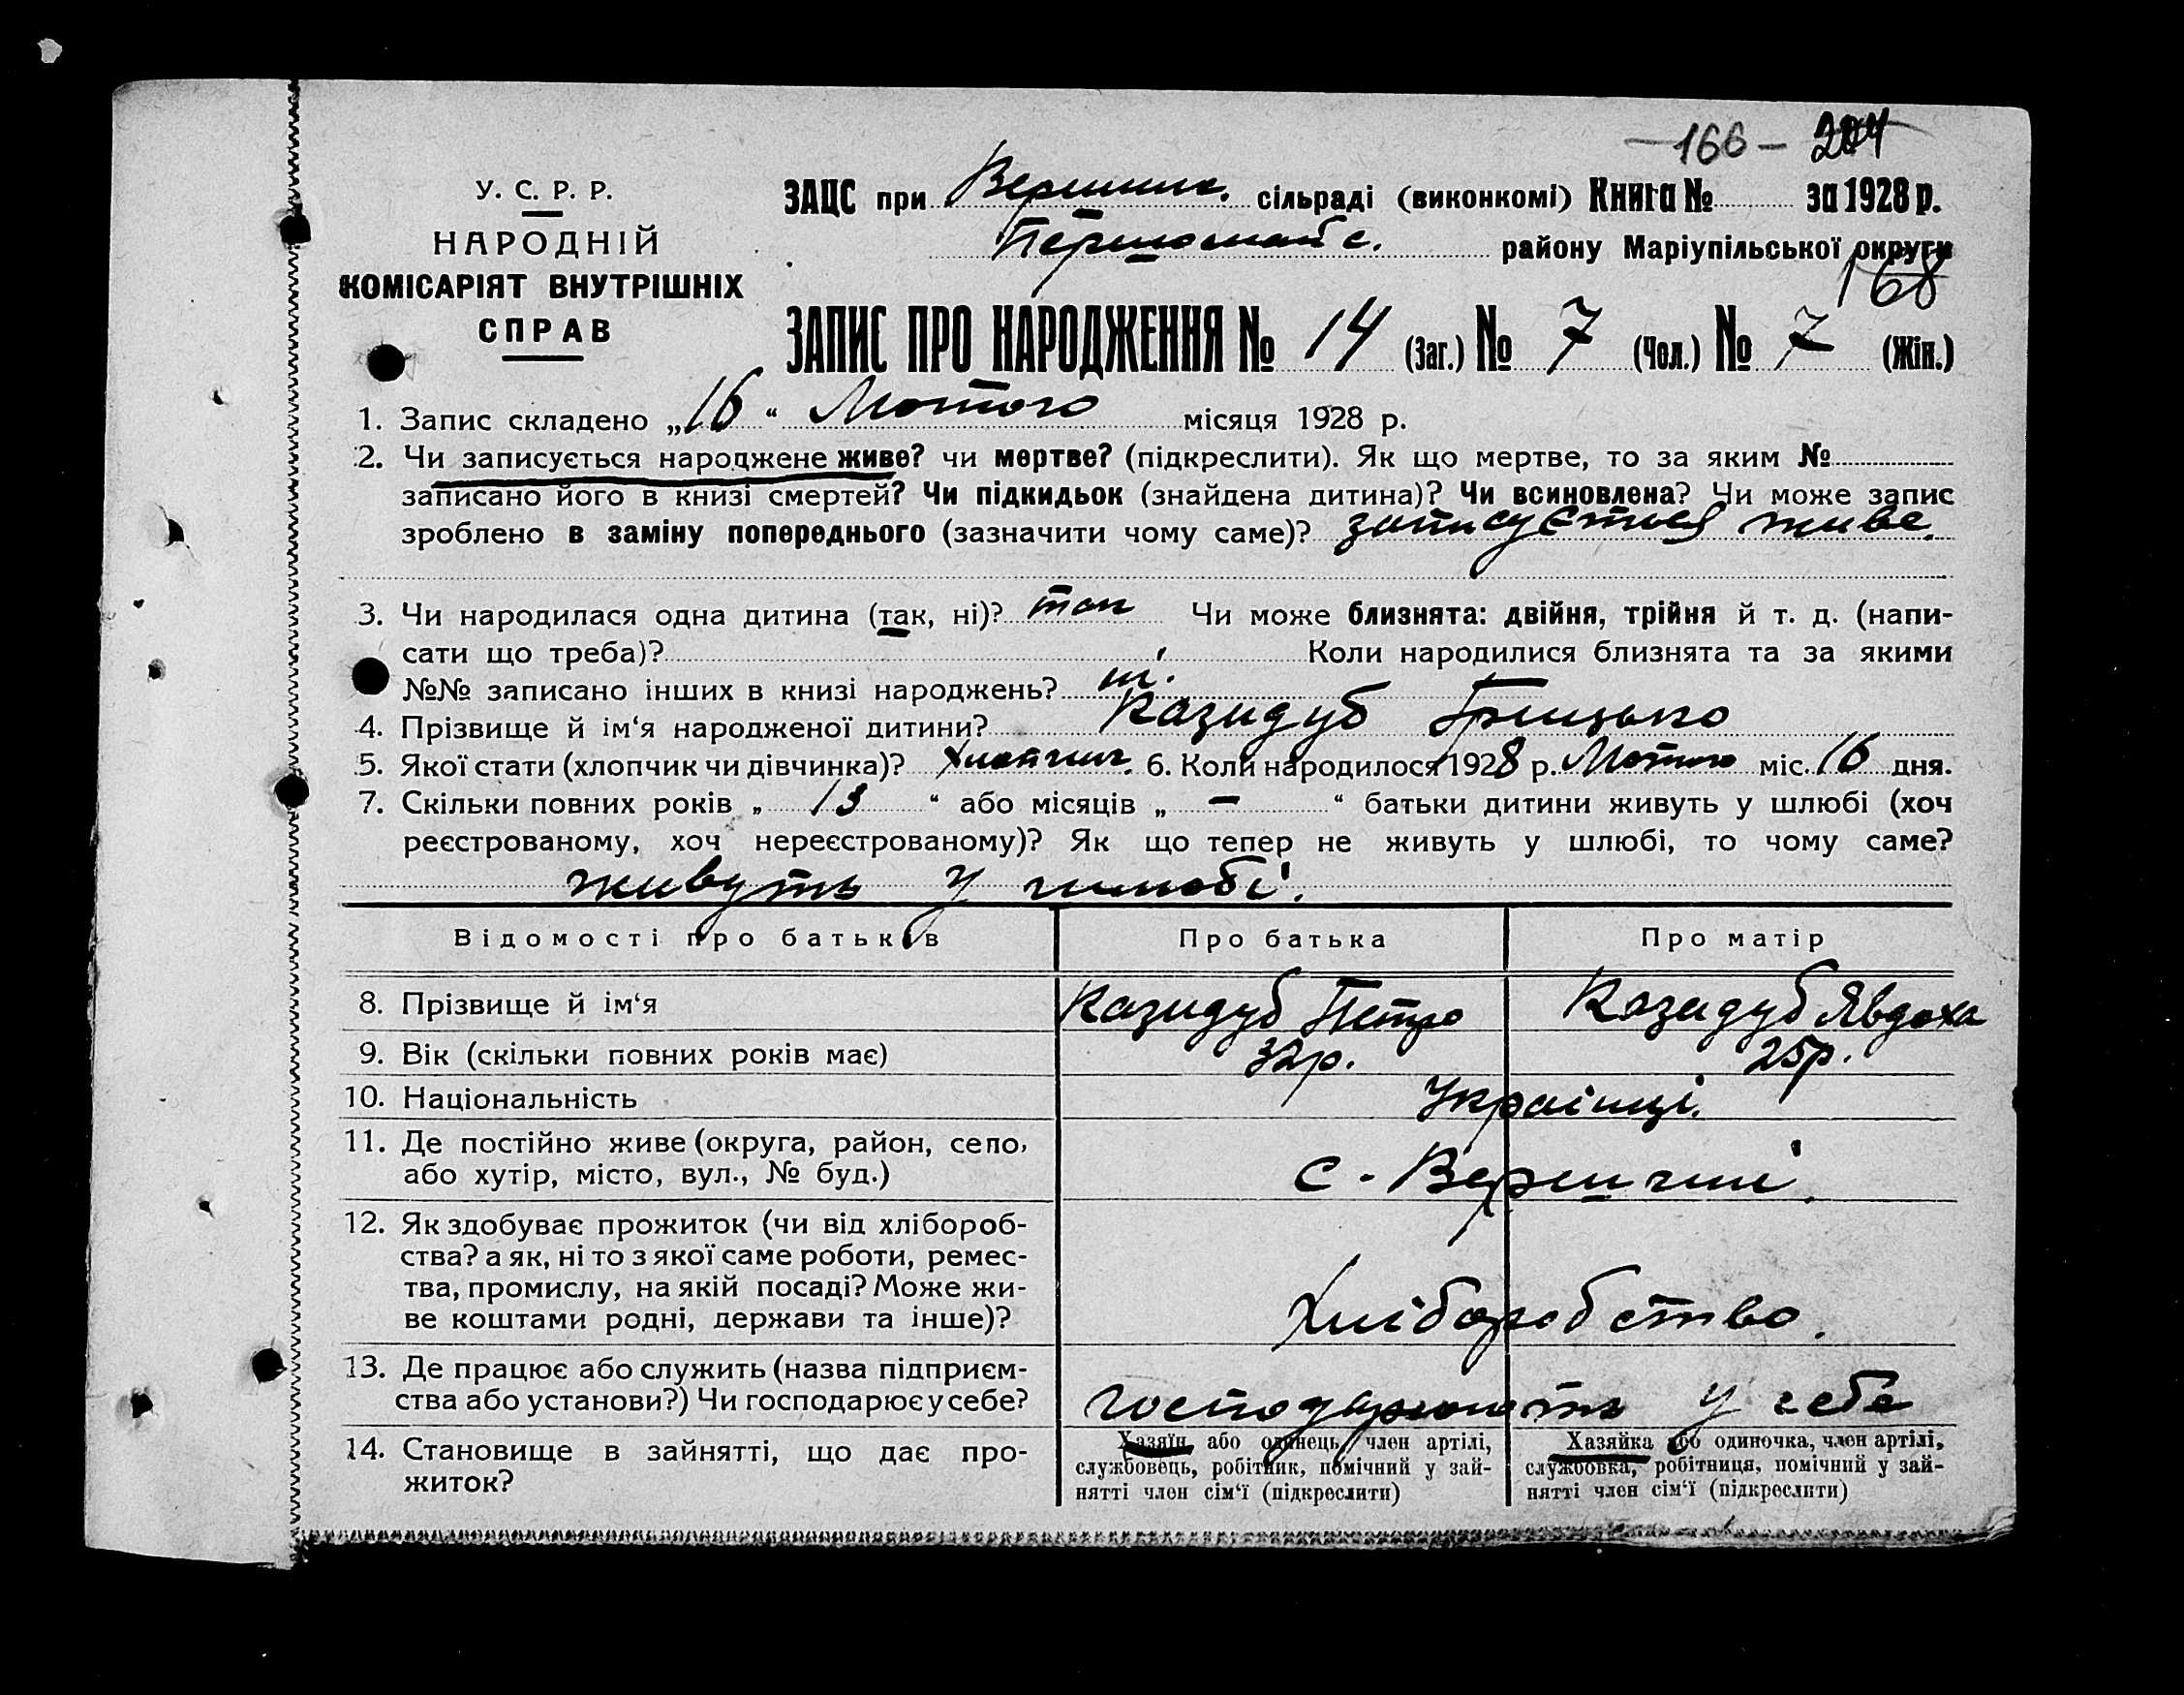 -166- 204
У. С. Р. Р.
НАРОДНІЙ
КОМІСАРІЯТ ВНУТРІШНІХ
СПРАВ
ЗАЦС при Вершин. сільраді (виконкомі) Книга № за 1928 р.
Першомайс. району Маріупільської округи
168
ЗАПИС ПРО НАРОДЖЕННЯ № 14 (Заг.) № 7 (Чол.) № 7 (Жін.)
1. Запис складено „16“ Лютого місяця 1928 р.
2. Чи записується народжене живе? чи мертве? (підкреслити). Як що мертве, то за яким №
записано його в книзі смертей? Чи підкидьок (знайдена дитина)? Чи всиновлена? Чи може запис
зроблено в заміну попереднього (зазначити чому саме)? записується живе.
3. Чи народилася одна дитина (так, ні)? так Чи може близнята: двійня, трійня й т. д. (напи-
сати що треба)? Коли народилися близнята та за якими
№№ записано інших в книзі народжень? ні.
4. Прізвище й ім‘я народженої дитини? Казидуб Грицько
5. Якої стати (хлопчик чи дівчинка)? Хлопчик. 6. Коли народилося 1928 р. Лютого міс. 16 дня.
7. Скільки повних років „ 13 “ або місяців „ — “ батьки дитини живуть у шлюбі (хоч
реєстрованому, хоч нереєстрованому)? Як що тепер не живуть у шлюбі, то чому саме?
живуть у шлюбі.
Відомості про батьків Про батька Про матір
8. Прізвище й ім‘я Казидуб Петро Казидуб Явдоха
9. Вік (скільки повних років має) 32р. 25р.
10. Національність Українці.
11. Де постійно живе (округа, район, село,
або хутір, місто, вул., № буд.) с-Вершині.
12. Як здобуває прожиток (чи від хлібороб-
ства? а як, ні то з якої саме роботи, ремес-
тва, промислу, на якій посаді? Може жи-
ве коштами родні, держави та інше)? Хліборобство.
13. Де працює або служить (назва підприєм-
ства або установи?) Чи господарює у себе? господарюють у себе
14. Становище в зайнятті, що дає про-
житок?
Хазяїн або одинець, член артілі,
службовець, робітник, помічний у зай-
нятті член сім‘ї (підкреслити)
Хазяйка або одиночка, член артілі,
службовка, робітниця, помічний у зай-
нятті член сім‘ї (підкреслити)